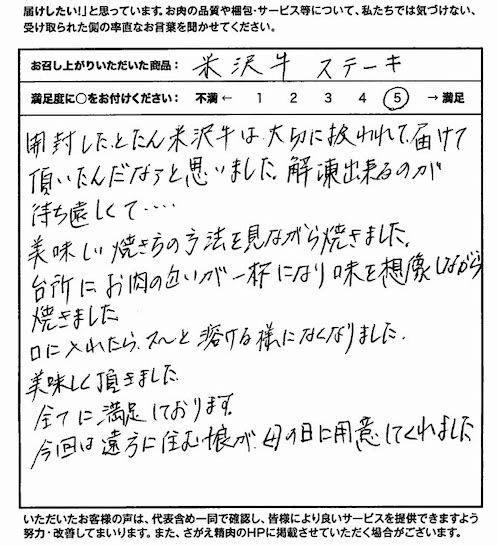 届けしたい!」と思っています。お肉の品質や梱包・サービス等について、私たちでは気づけない、
受け取られた側の率直なお言葉を聞かせてください。
お召し上がりいただいた商品: 米沢牛 ステーキ
満足度に○をお付けください: 不満 ← 1 2 3 4 5 → 満足
開封したとたん米沢牛は大切に扱われて届けて
頂いたんだなァと思いました。解凍出来るのが
待ち遠しくて・・・・
美味しい焼き方の方法を見ながら焼きました。
台所にお肉の匂いが一杯になり味を想像しながら
焼きました
口に入れたら、スーと溶ける様になくなりました。
美味しく頂きました
全てに満足しております。
今回は遠方に住む娘が、母の日に用意してくれました
いただいたお客様の声は、代表含め一同で確認し、皆様により良いサービスを提供できますよう
努力・改善してまいります。また、さがえ精肉のHPに掲載させていただく場合がございます。